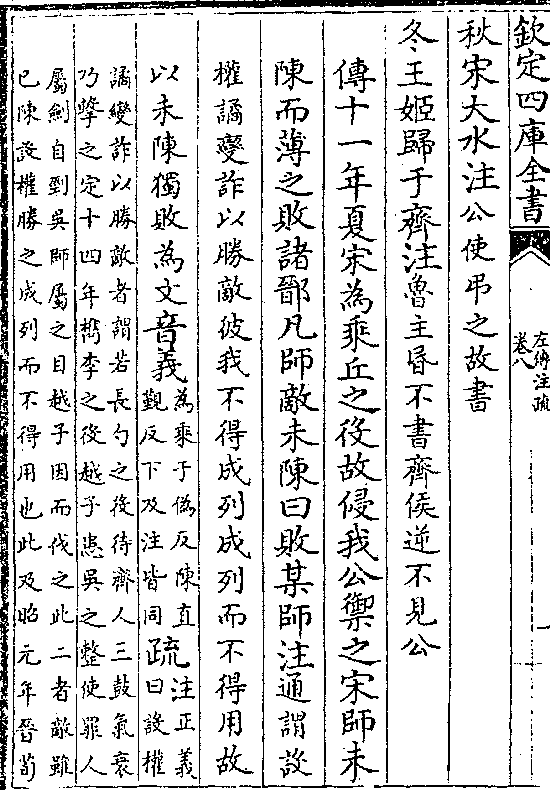 欽定四庫全書
左傳注疏
卷八
一
秋宋大水注公使弔之故書
冬王姬歸于齊注魯主昏不書齊侯逆不見公
傳十一年夏宋為乘丘之役故侵我公禦之宋師未
陳而薄之敗諸鄑凡師敵未陳曰敗某師注通謂設
權譎變詐以勝敵彼我不得成列成列而不得用故
以未陳獨敗為文音義為乘于偽反陳直
覲反下及注皆同疏注正義
曰設權
譎變詐以勝敵者謂若長勺之役待齊人三鼓氣衰
乃擊之定十四年檇李之役越子患吳之整使罪人
屬劍自剄吳師屬之目越子因而伐之此二者敵雖
已陳設權勝之成列而不得用也此及昭元年晉荀